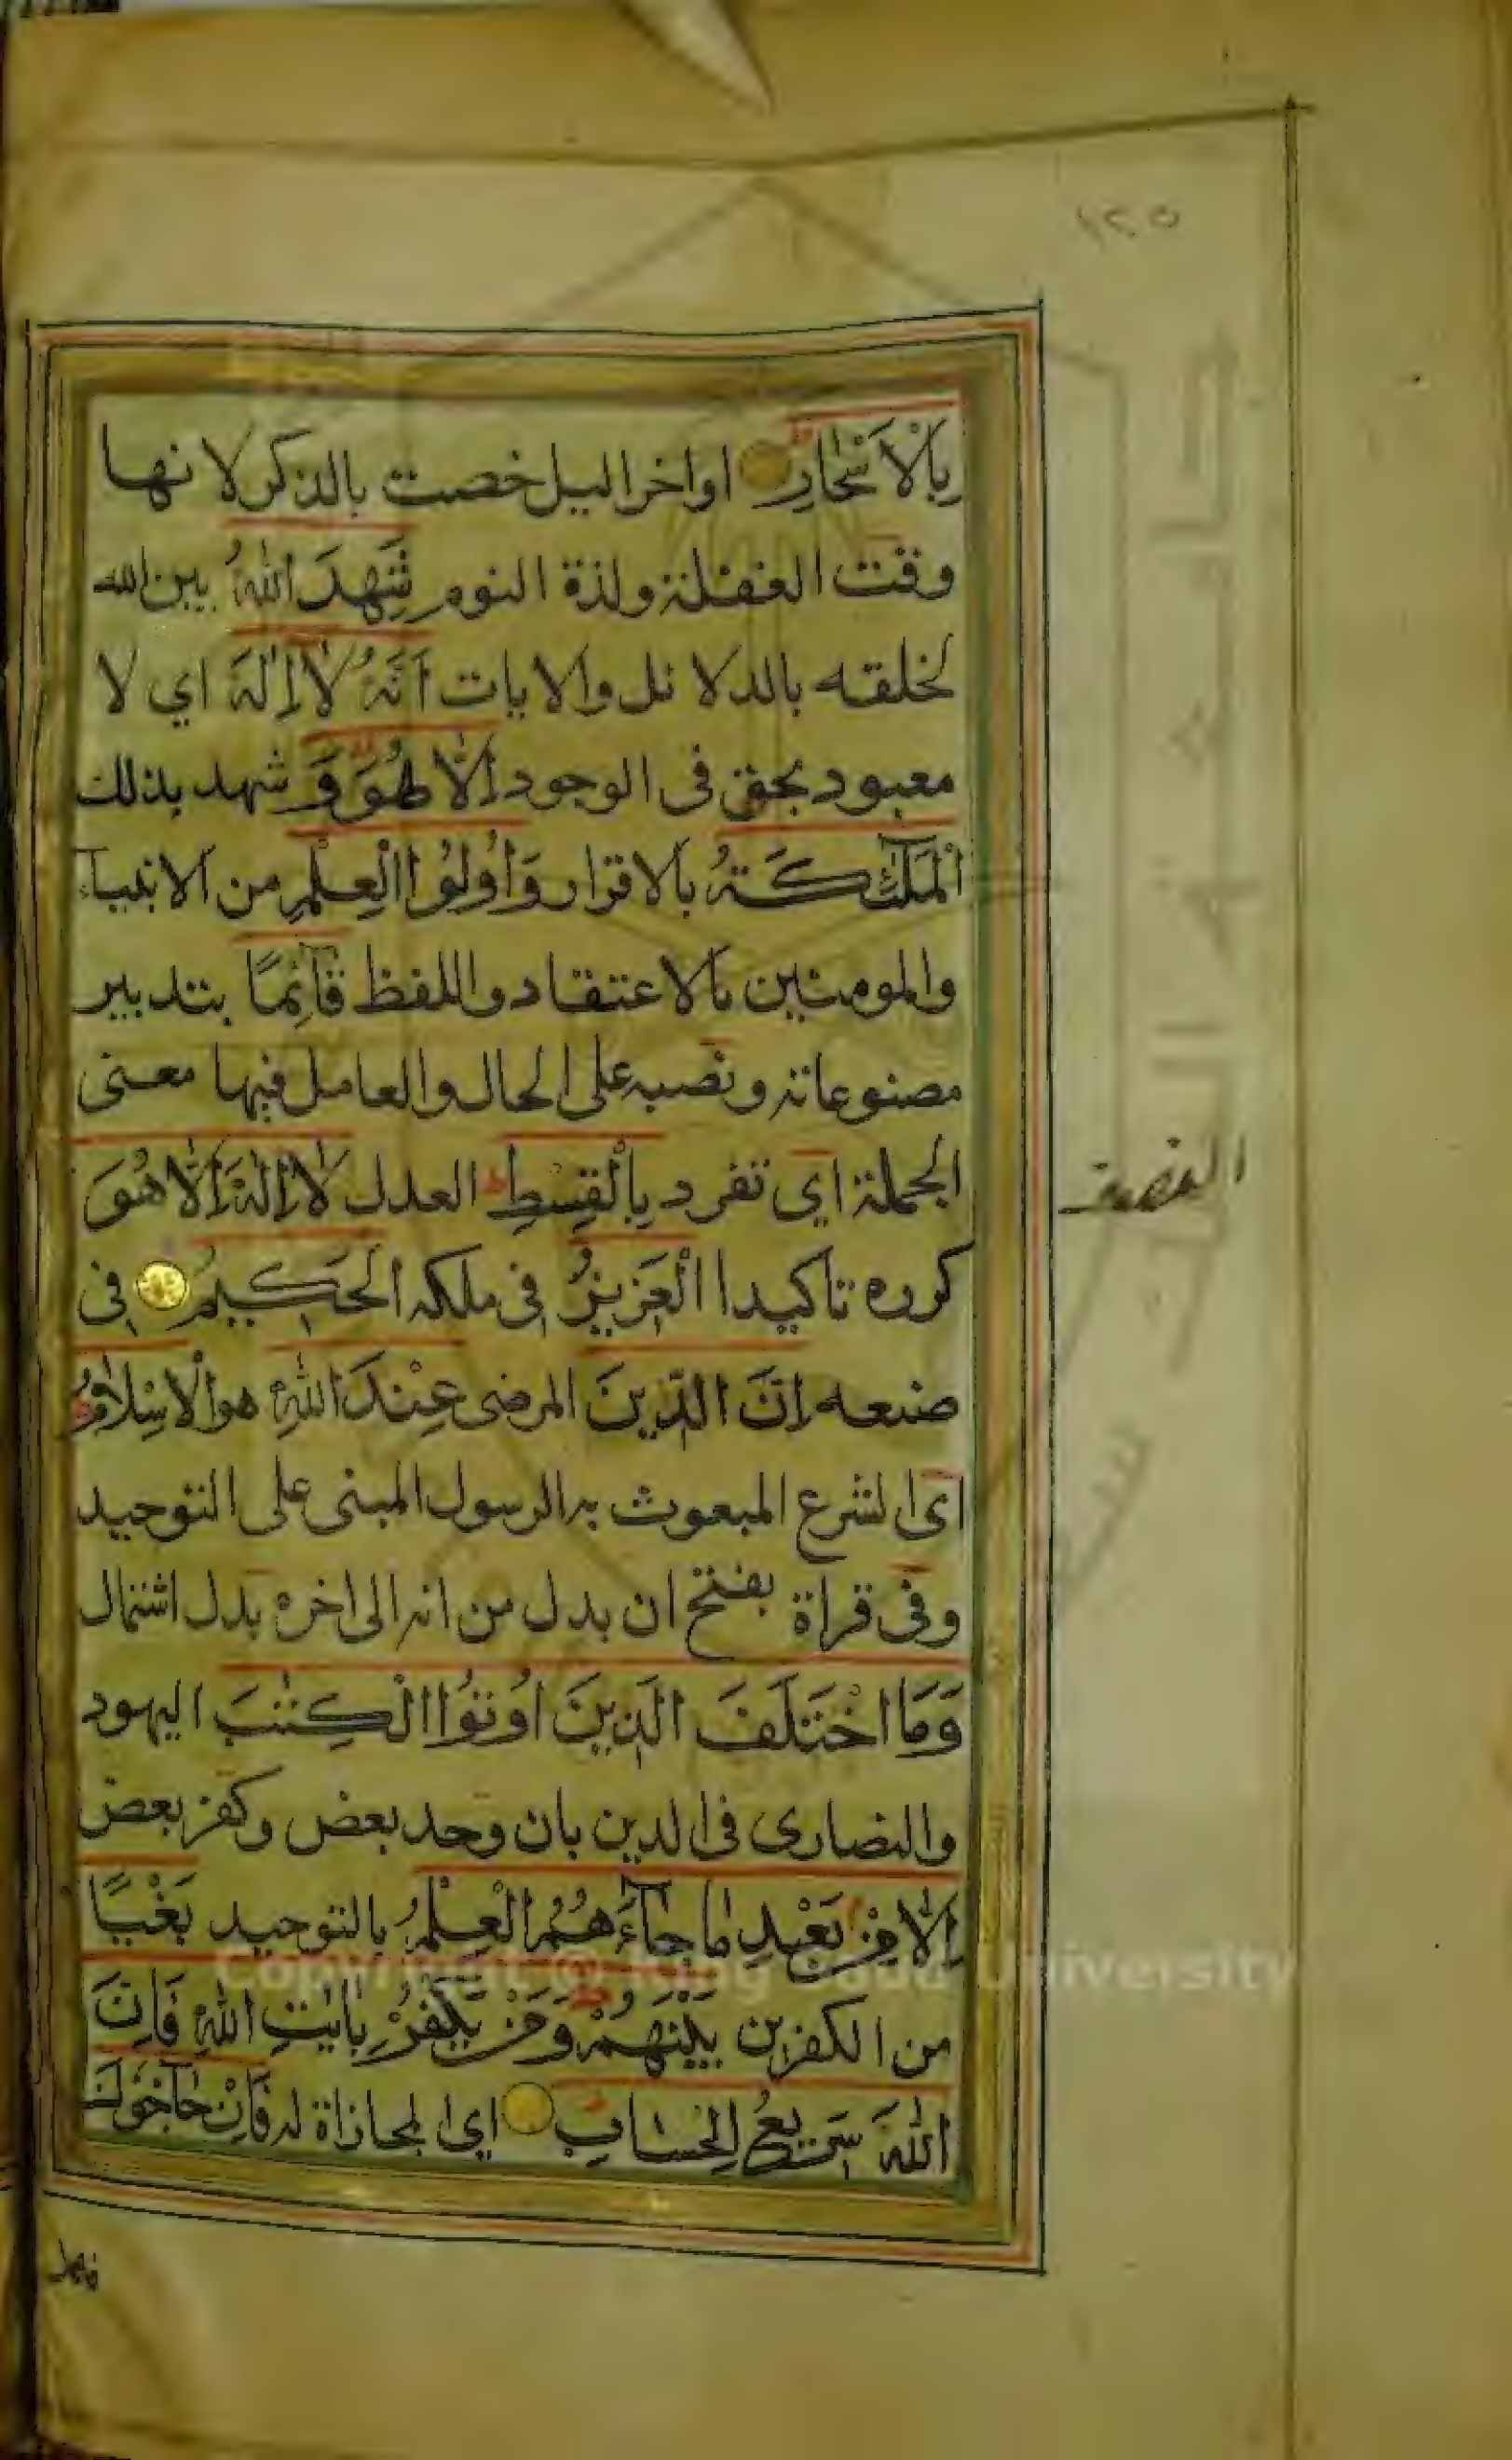 ١٢٥
بِالْاَسْحَارِ اواخر اليل خصت بالذكر لانها
وقت الغفلة ولذة النوم شَهِدَ اللّٰهُ بين الله
لخلقه بالدلائل والايات اَنَّهُ لَا اِلٰهَ اي لا
معبود بحق فى الوجود اِلَّا هُوَ وَ شهد بذلك
الْمَلٰٓئِكَةُ بالاقرار وَاُولُوا الْعِلْمِ من الانبياء
والمومنين بالاعتقاد واللفظ قَآئِمًا بتدبير
مصنوعاته ونصبه على الحال والعامل فيها معنى
الجملة اي تفرد بِالْقِسْطِ العدل لَا اِلٰهَ اِلَّا هُوَ
كرره تاكيدا الْعَزِيزُ فى ملكه الْحَكِيمُ فى
صنعه اِنَّ الدِّينَ المرضى عِنْدَ اللّٰهِ هو الْاِسْلَامُ
اى الشرع المبعوث به الرسول المبنى على التوحيد
وفى قراة بفتح ان بدل من انه الى اخره بدل اشتمال
وَمَا اخْتَلَفَ الَّذِينَ اُوتُوا الْكِتٰبَ اليهود
والنصارى فى الدين بان وحد بعض وكفر بعض
اِلَّا مِنْ بَعْدِ مَا جَآءَهُمُ الْعِلْمُ بالتوحيد بَغْيًا
من الكفرين بَيْنَهُمْ وَمَنْ يَكْفُرْ بِاٰيٰتِ اللّٰهِ فَاِنَّ
اللّٰهَ سَرِيعُ الْحِسَابِ اي المجازاة له فَاِنْ حَآجُّوكَ
Copyright © King Saud University
جامعة الملك سعود